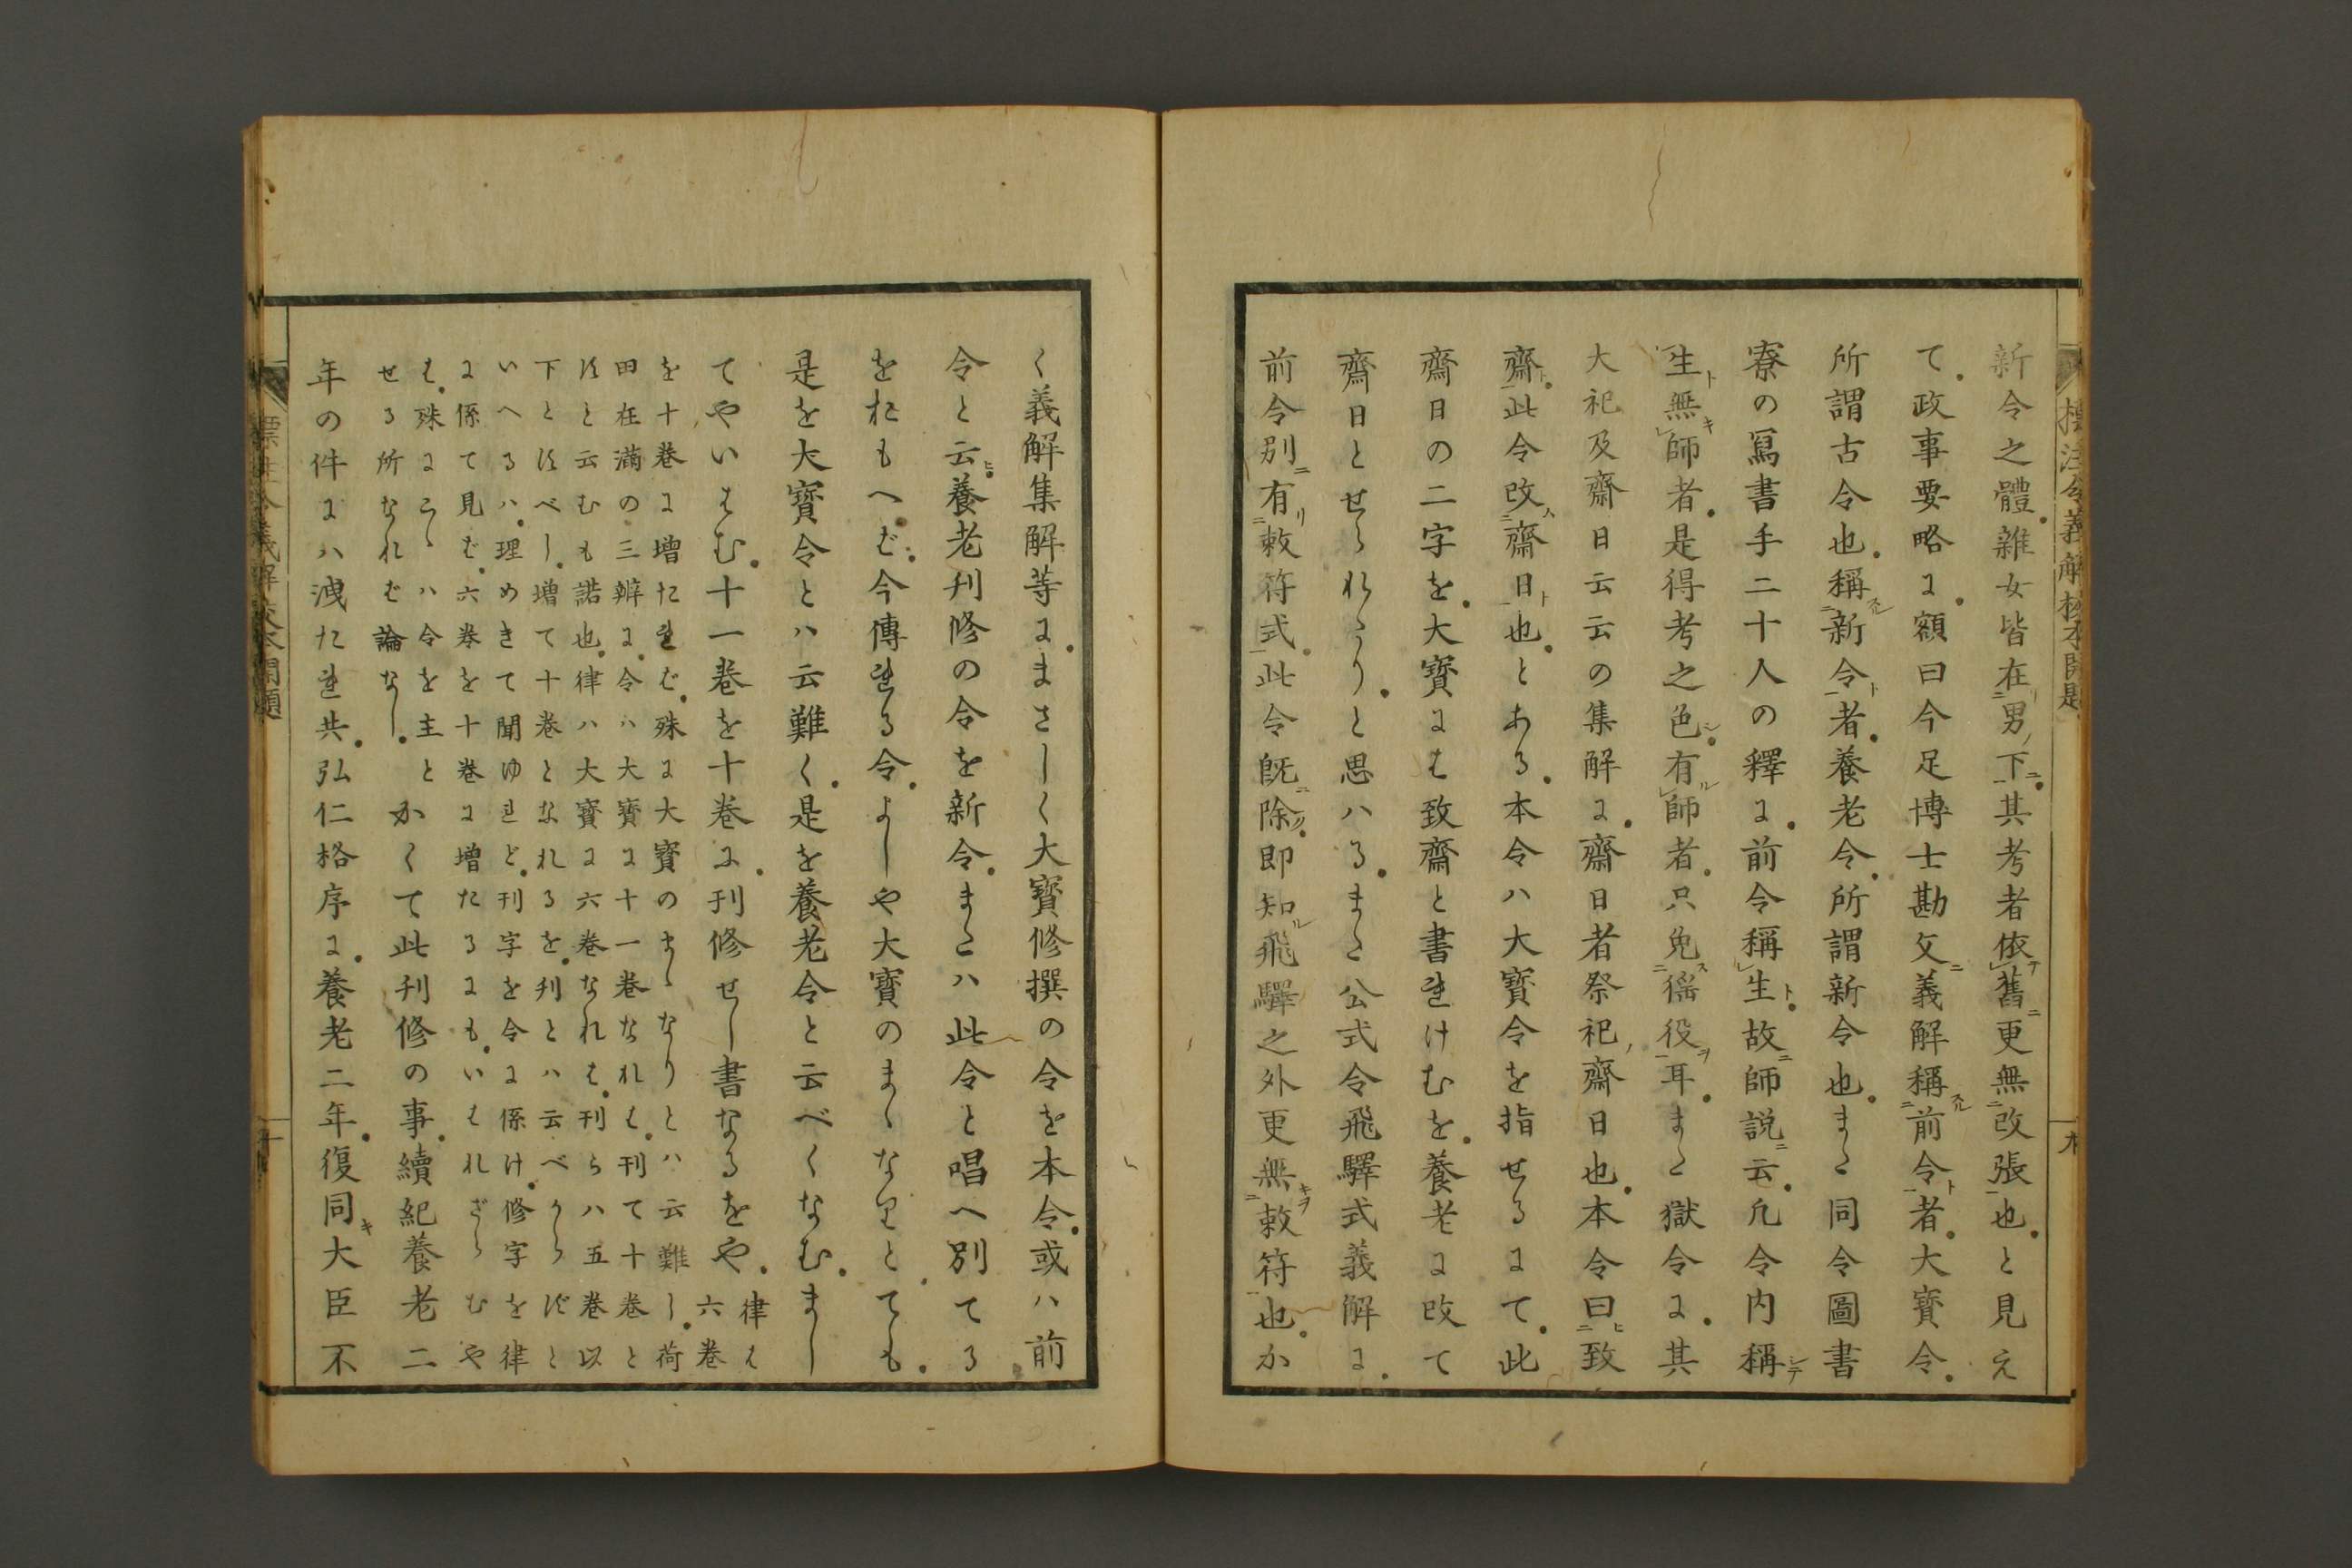 新令之體雜女皆在男下其考者依舊更無改張也と見え
て政事要略に額曰今足博士勘文義解稱前令者大寶令
所謂古令也稱新令者養老令所謂新令也また同令圖書
寮の寫書手二十人の釋に前令稱生故師說云凡令内稱
生無師者是得考之色有師者只免徭役耳また獄令に其
大祀及齋日云云の集解に齋日者祭祀齋日也本令曰致
齋此令改齋日也とある本令ハ大寶令を指せるにて此
齋日の二字を大寶には致齋と書れけむを養老に改て
齋日とせられたりと思ハるまた公式令飛驛式義解に
前令別有敕符式此令既除即知飛驛之外更無敕符也か
く義解集解等にまさしく大寶修撰の令を本令或ハ前
令と云養老刊修の令を新令またハ此令と唱へ別てる
をおもへば今傳れる令よしや大寶のまゝなりとても
是を大寶令とハ云難く是を養老令と云べくなむまし
てやいはむ十一卷を十卷に刊修せし書なるをや
律は
六卷
を十卷に增たれば殊に大寶のまゝなりとハ云難し荷
田在滿の三辨に令ハ大寶に十一卷なれば刊て十卷と
すと云むも諾也律ハ大寶に六卷なれば刊らハ五卷以
下とすべし增て十卷となれるを刊とハ云べからずと
いへるハ理めきて聞ゆれど刊字を令に係け修字を律
に係て見ば六卷を十卷に增たるにもいはれざらむや
は殊にこゝハ令を主と
せる所なれば論なし
かくて此刊修の事續紀養老二
年の件にハ洩たれ共弘仁格序に養老二年復同大臣不
標注令義解校本開題
九
標註令義解校本開題
十